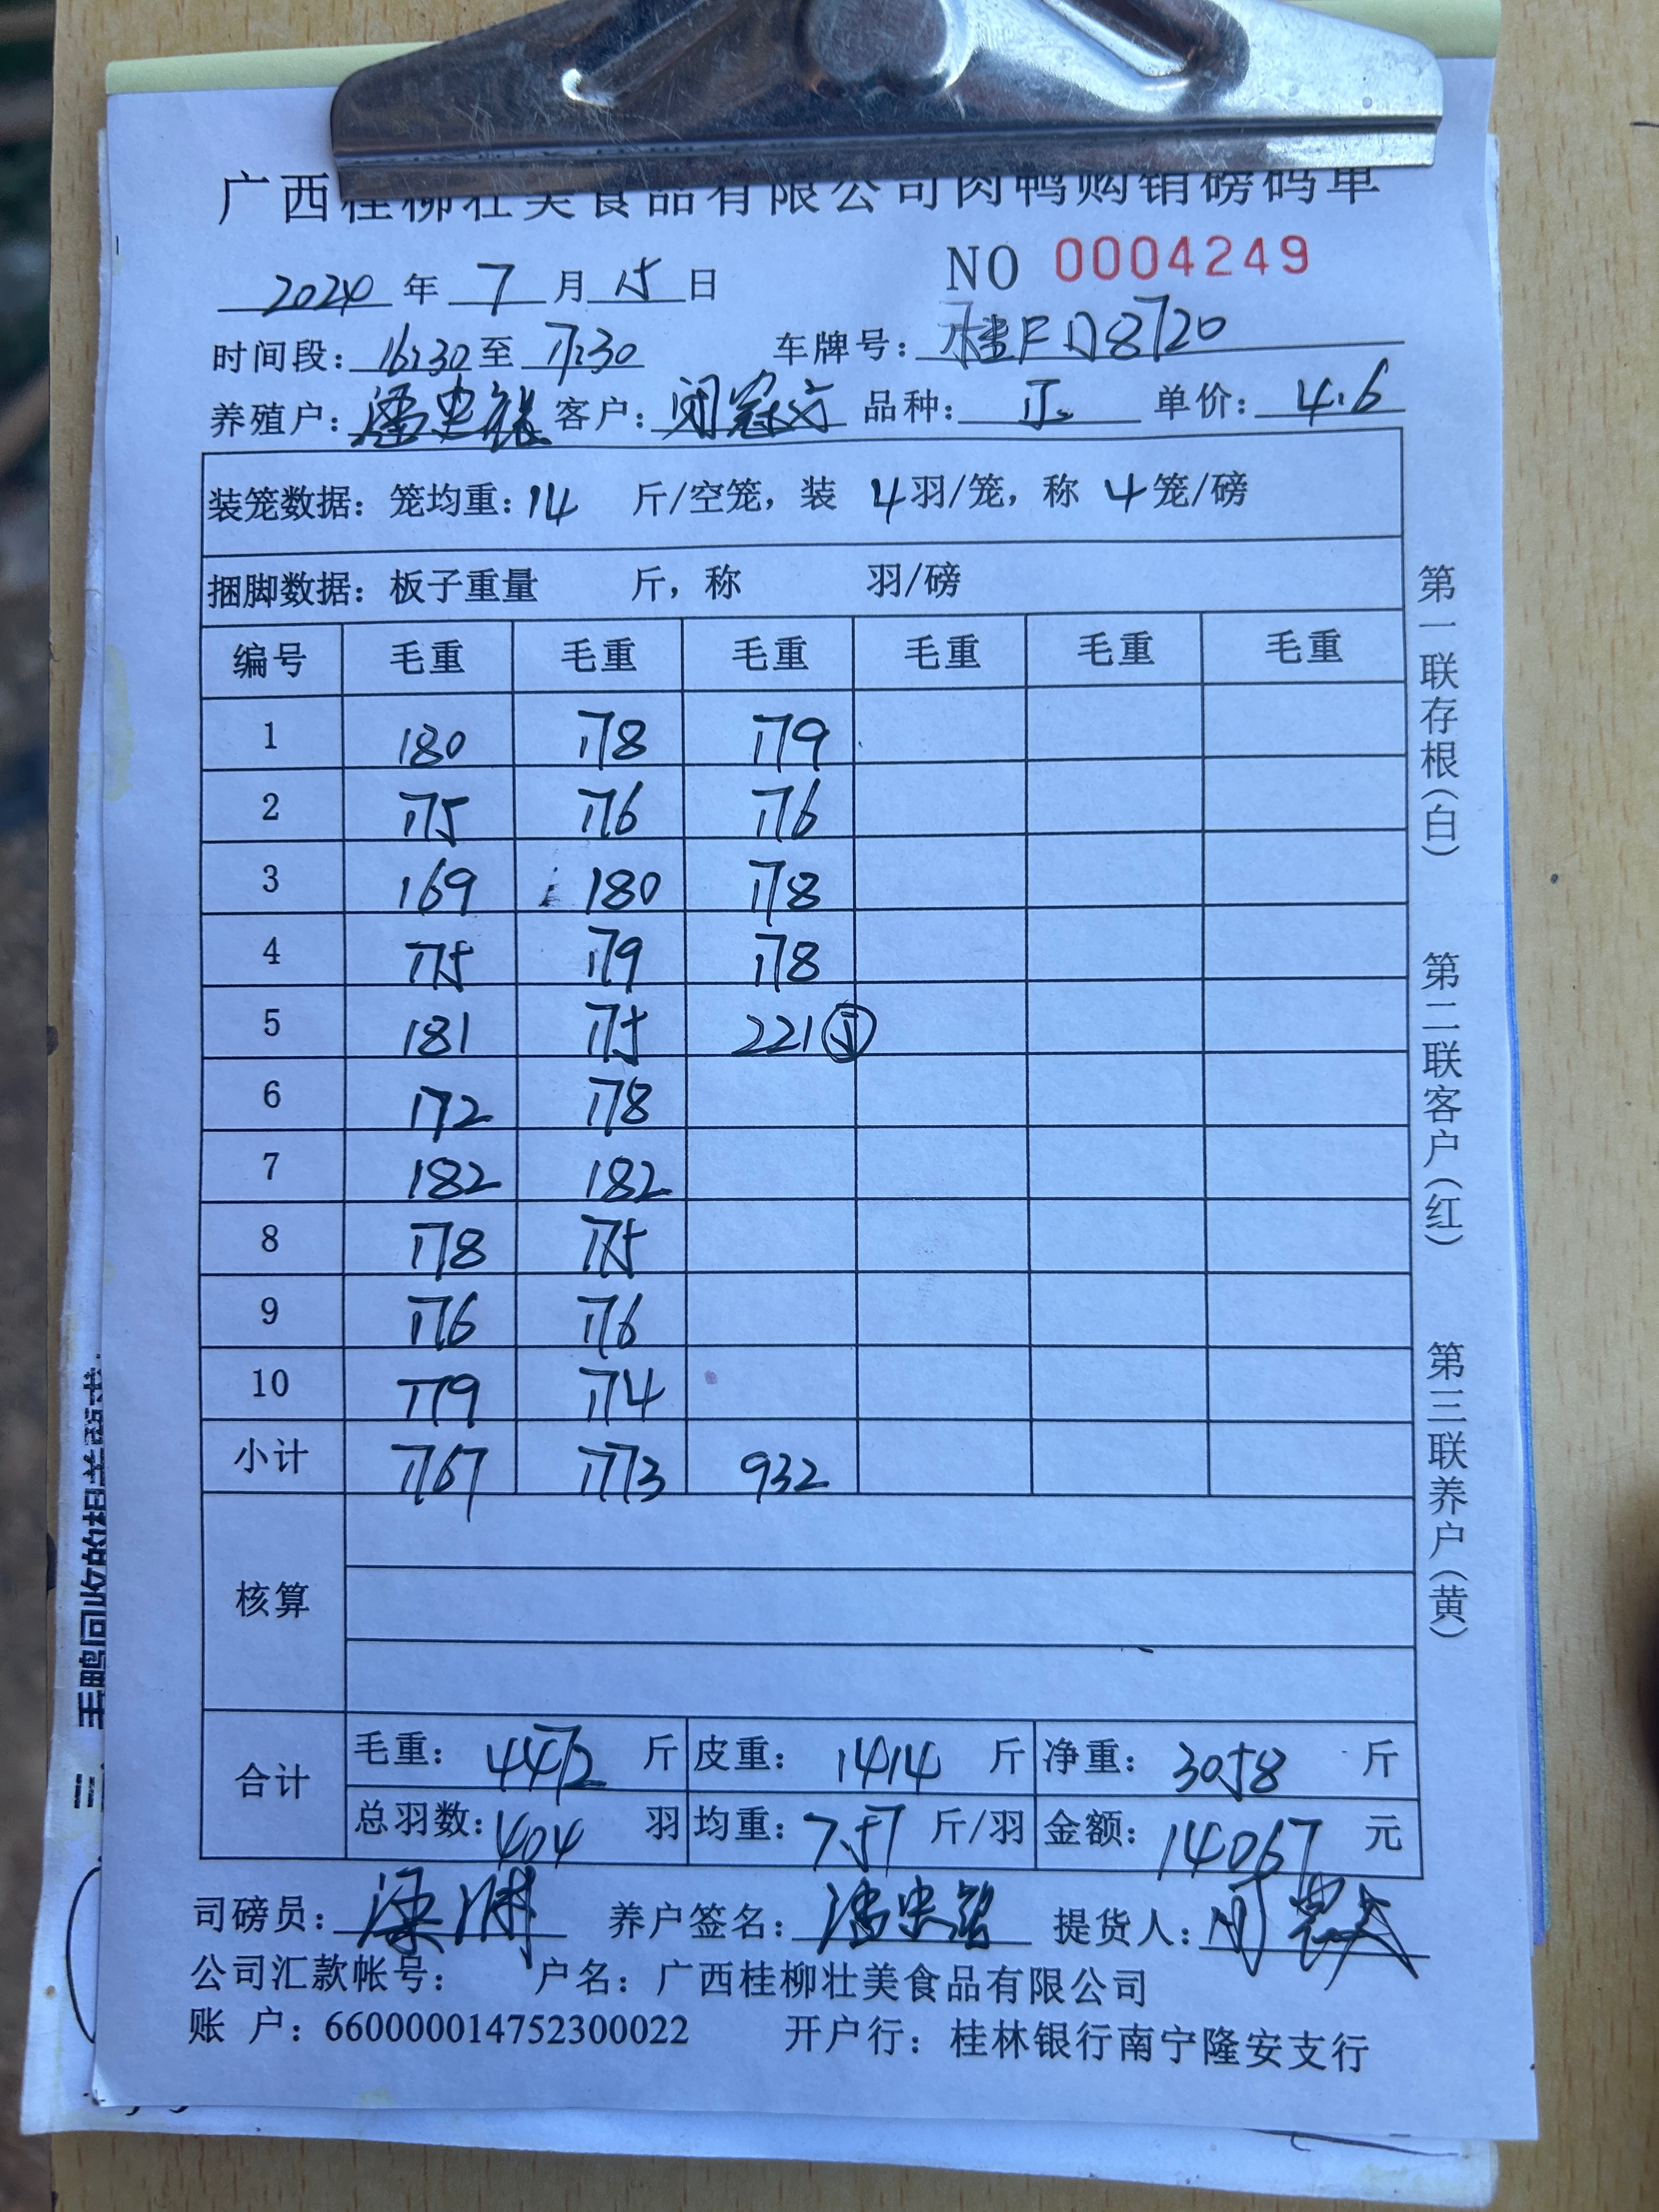 广西桂柳壮美食品有限公司肉鸭购销磅码单
NO 0004249
2024 年 7 月 15 日
时间段: 16:30 至 17:30 车牌号: 桂FD8720
养殖户: 潘忠 客户: 闭冠文 品种: 单价: 4.6
装笼数据: 笼均重: 14 斤/空笼, 装 4 羽/笼, 称 4 笼/磅
捆脚数据: 板子重量 斤, 称 羽/磅
编号 毛重 毛重 毛重 毛重 毛重 毛重
1 180 178 179
2 175 176 176
3 169 180 178
4 175 179 178
5 181 175 221 ⑤
6 172 178
7 182 182
8 178 175
9 176 176
10 179 174
小计 1767 1773 932
核算
合计 毛重: 4472 斤 皮重: 1414 斤 净重: 3058 斤
总羽数: 404 羽 均重: 7.57 斤/羽 金额: 14067 元
司磅员: 梁 养户签名: 潘忠 提货人: 闭
公司汇款帐号: 户名: 广西桂柳壮美食品有限公司
账 户: 660000014752300022 开户行: 桂林银行南宁隆安支行
第一联存根(白)
第二联客户(红)
第三联养户(黄)